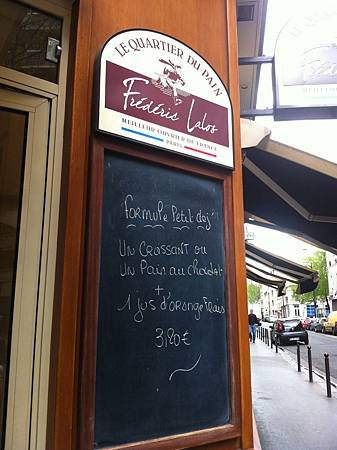 LE QUARTIER DU PAIN
Frédéric Lalos
MEILLEUR OUVRIER DE FRANCE
PARIS
FORMULE Petit dej'
UN CROISSANT ou
UN PAIN au chocolat
+
1 jus d'orange FRAIS
3,20€